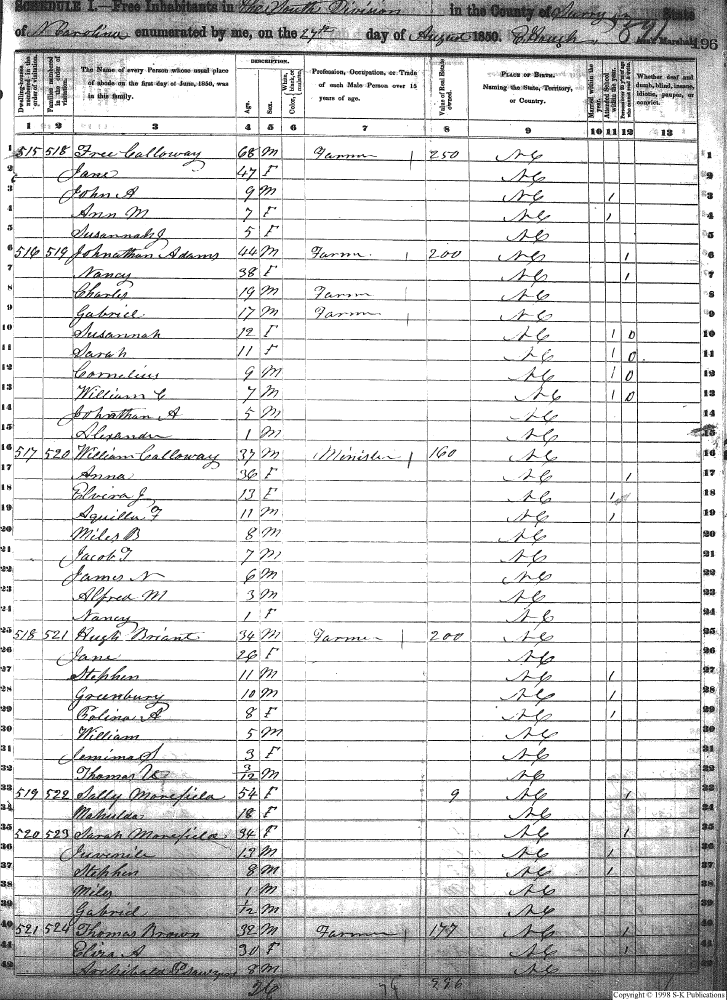 SCHEDULE I.—Free Inhabitants in The South Division in the County of Surry State
of N Carolina enumerated by me, on the 27th day of August 1850. Ass't Marshal. 196
Dwelling-houses numbered in the order of visitation. Families numbered in the order of visitation. The Name of every Person whose usual place of abode on the first day of June, 1850, was in this family. DESCRIPTION. Age. Sex. Color, White, black, or mulatto. Profession, Occupation, or Trade of each Male Person over 15 years of age. Value of Real Estate owned. PLACE OF BIRTH. Naming the State, Territory, or Country. Married within the year. Attended School within the year. Whether deaf and dumb, blind, insane, idiotic, pauper, or convict.
1 2 3 4 5 6 7 8 9 10 11 12 13
1 515 518 Free Calloway 68 M Farmer 250 NC 1
2 Jane 47 F NC 2
3 John A 9 M NC 1 3
4 Ann M 7 F NC 1 4
5 Susannah J 5 F NC 5
6 516 519 Johnathan Adams 44 M Farmer 200 NC 1 6
7 Nancy 38 F NC 1 7
8 Charles 19 M Farmer NC 8
9 Gabriel 17 M Farmer NC 9
10 Susannah 12 F NC 1 0 10
11 Sarah 11 F NC 1 0 11
12 Cornelius 9 M NC 1 0 12
13 William C 7 M NC 1 0 13
14 Johnathan A 5 M NC 14
15 Alexander 1 M NC 15
16 517 520 William Calloway 37 M Minister 160 NC 16
17 Anna 36 F NC 1 17
18 Elvira J 13 F NC 1 18
19 Aquilla F 11 M NC 1 19
20 Miles B 8 M NC 20
21 Jacob T 7 M NC 21
22 James N 6 M NC 22
23 Alfred M 3 M NC 23
24 Nancy 1 F NC 24
25 518 521 Hugh Briant 34 M Farmer 200 NC 25
26 Jane 26 F NC 26
27 Stephen 11 M NC 1 27
28 Greenbury 10 M NC 1 28
29 A 8 F NC 1 29
30 William 5 M NC 30
31 Jemima 3 F NC 31
32 Thomas 3/12 M NC 32
33 519 522 Sally Morefield 54 F 9 NC 1 33
34 Mahulda 18 F NC 34
35 520 523 Sarah Morefield 34 F NC 1 35
36 Juvenile 13 M NC 1 36
37 Stephen 8 M NC 1 37
38 Miles 1 M NC 38
39 Gabriel 1/12 M NC 39
40 521 524 Thomas Brown 32 M Farmer 177 NC 1 40
41 Eliza A 30 F NC 1 41
42 Archibald 8 M NC 42
26 996
Copyright © 1998 S-K Publications